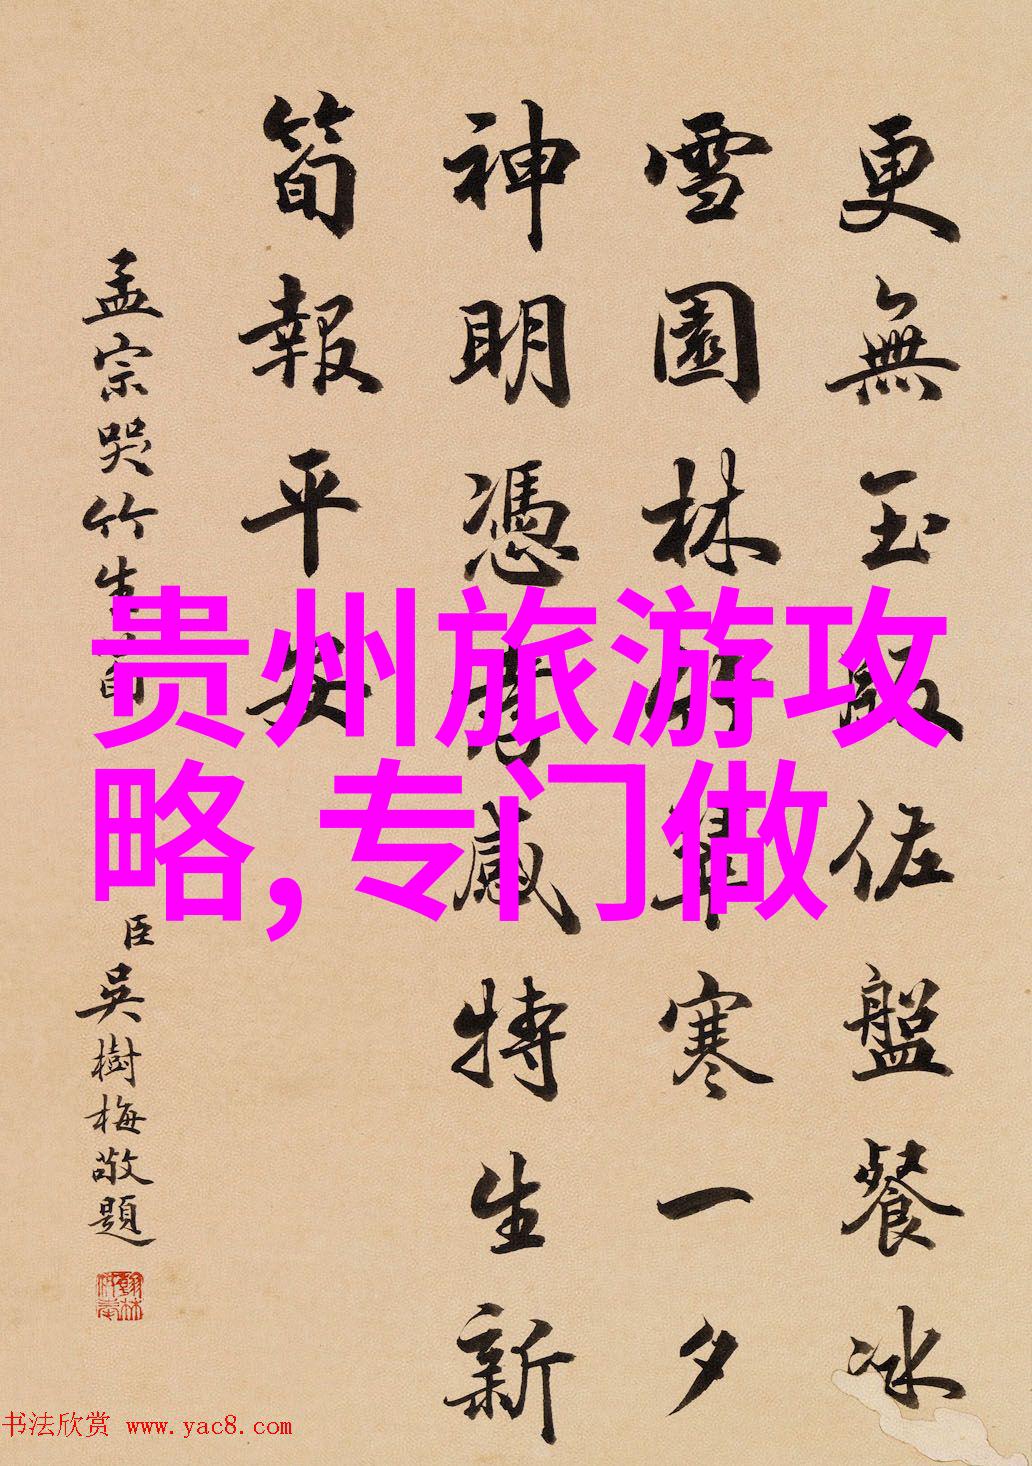 更無玉版佐盤餐冰
雪園林翠寒一夕
神明憑孝感特生新
筍報平安
孟宗哭竹生筍
臣吳樹梅敬題
贵州旅游攻
略,专门做
书法欣赏 www.yac8.com